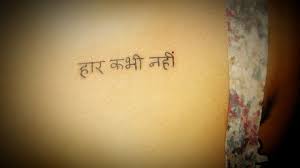 हार कभी नहीं